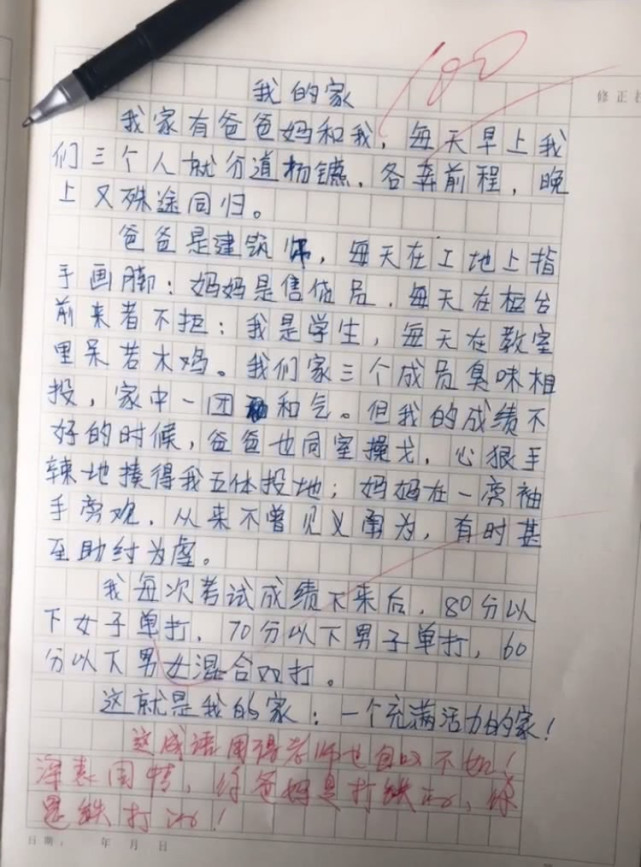 100
修正
我的家
我家有爸爸妈和我，每天早上我
们三个人就分道扬镳，各弃前程，晚
上又殊途同归。
爸爸是建筑师，每天在工地上指
手画脚；妈妈是售货员，每天在柜台
前来者不拒；我是学生，每天在教室
里呆若木鸡。我们家三个成员臭味相
投，家中一团和气。但我的成绩不
好的时候，爸爸也同室操戈，心狠手
辣地揍得我五体投地；妈妈在一旁袖
手旁观，从来不曾见义勇为，有时甚
至助纣为虐。
我每次考试成绩下来后，80分以
下女子单打，70分以下男子单打，60
分以下男女混合双打。
这就是我的家：一个充满活力的家！
这成语用得老师也自叹不如！
深表同情，你爸妈是打铁的，你
是铁打的！
日期： 年 月 日